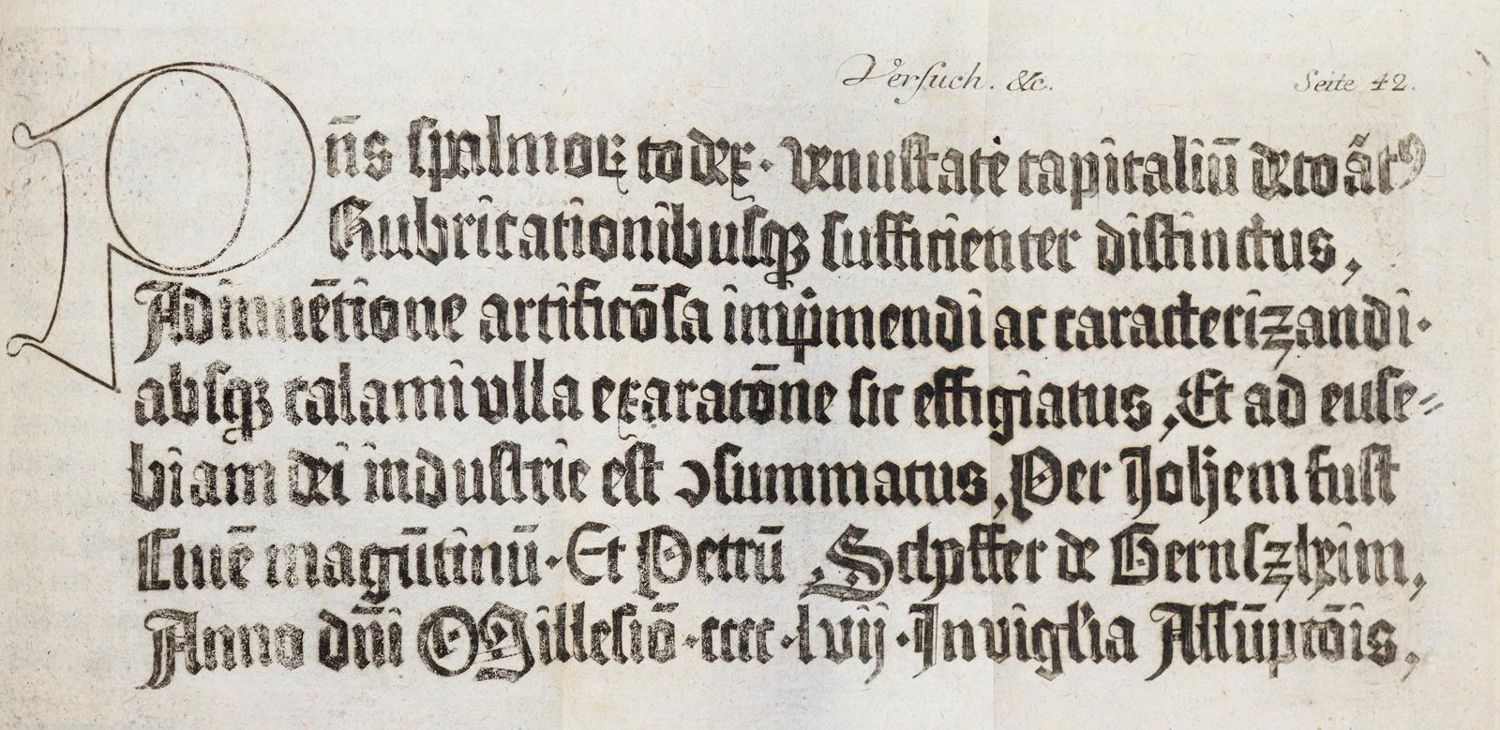 Versuch. &c. Seite 42.
Pn̄s spalmoꝝ codex. venustate capitaliū decoãtꝰ
Rubricationibusqꝫ sufficienter distinctus,
Adinuētione artificōsa imp̍mendi ac caracterizandi.
absqꝫ calami vlla exaracōne sic effigiatus, Et ad euse⸗
biam dei industrie est ↄsummatus, Per Joh̄em fust
Ciuē magūtinū. Et Petrū Schffer de Gernszheim,
Anno dn̄i Millesiō. cccc. lvij. In vigl̍ia Assūpcōis,